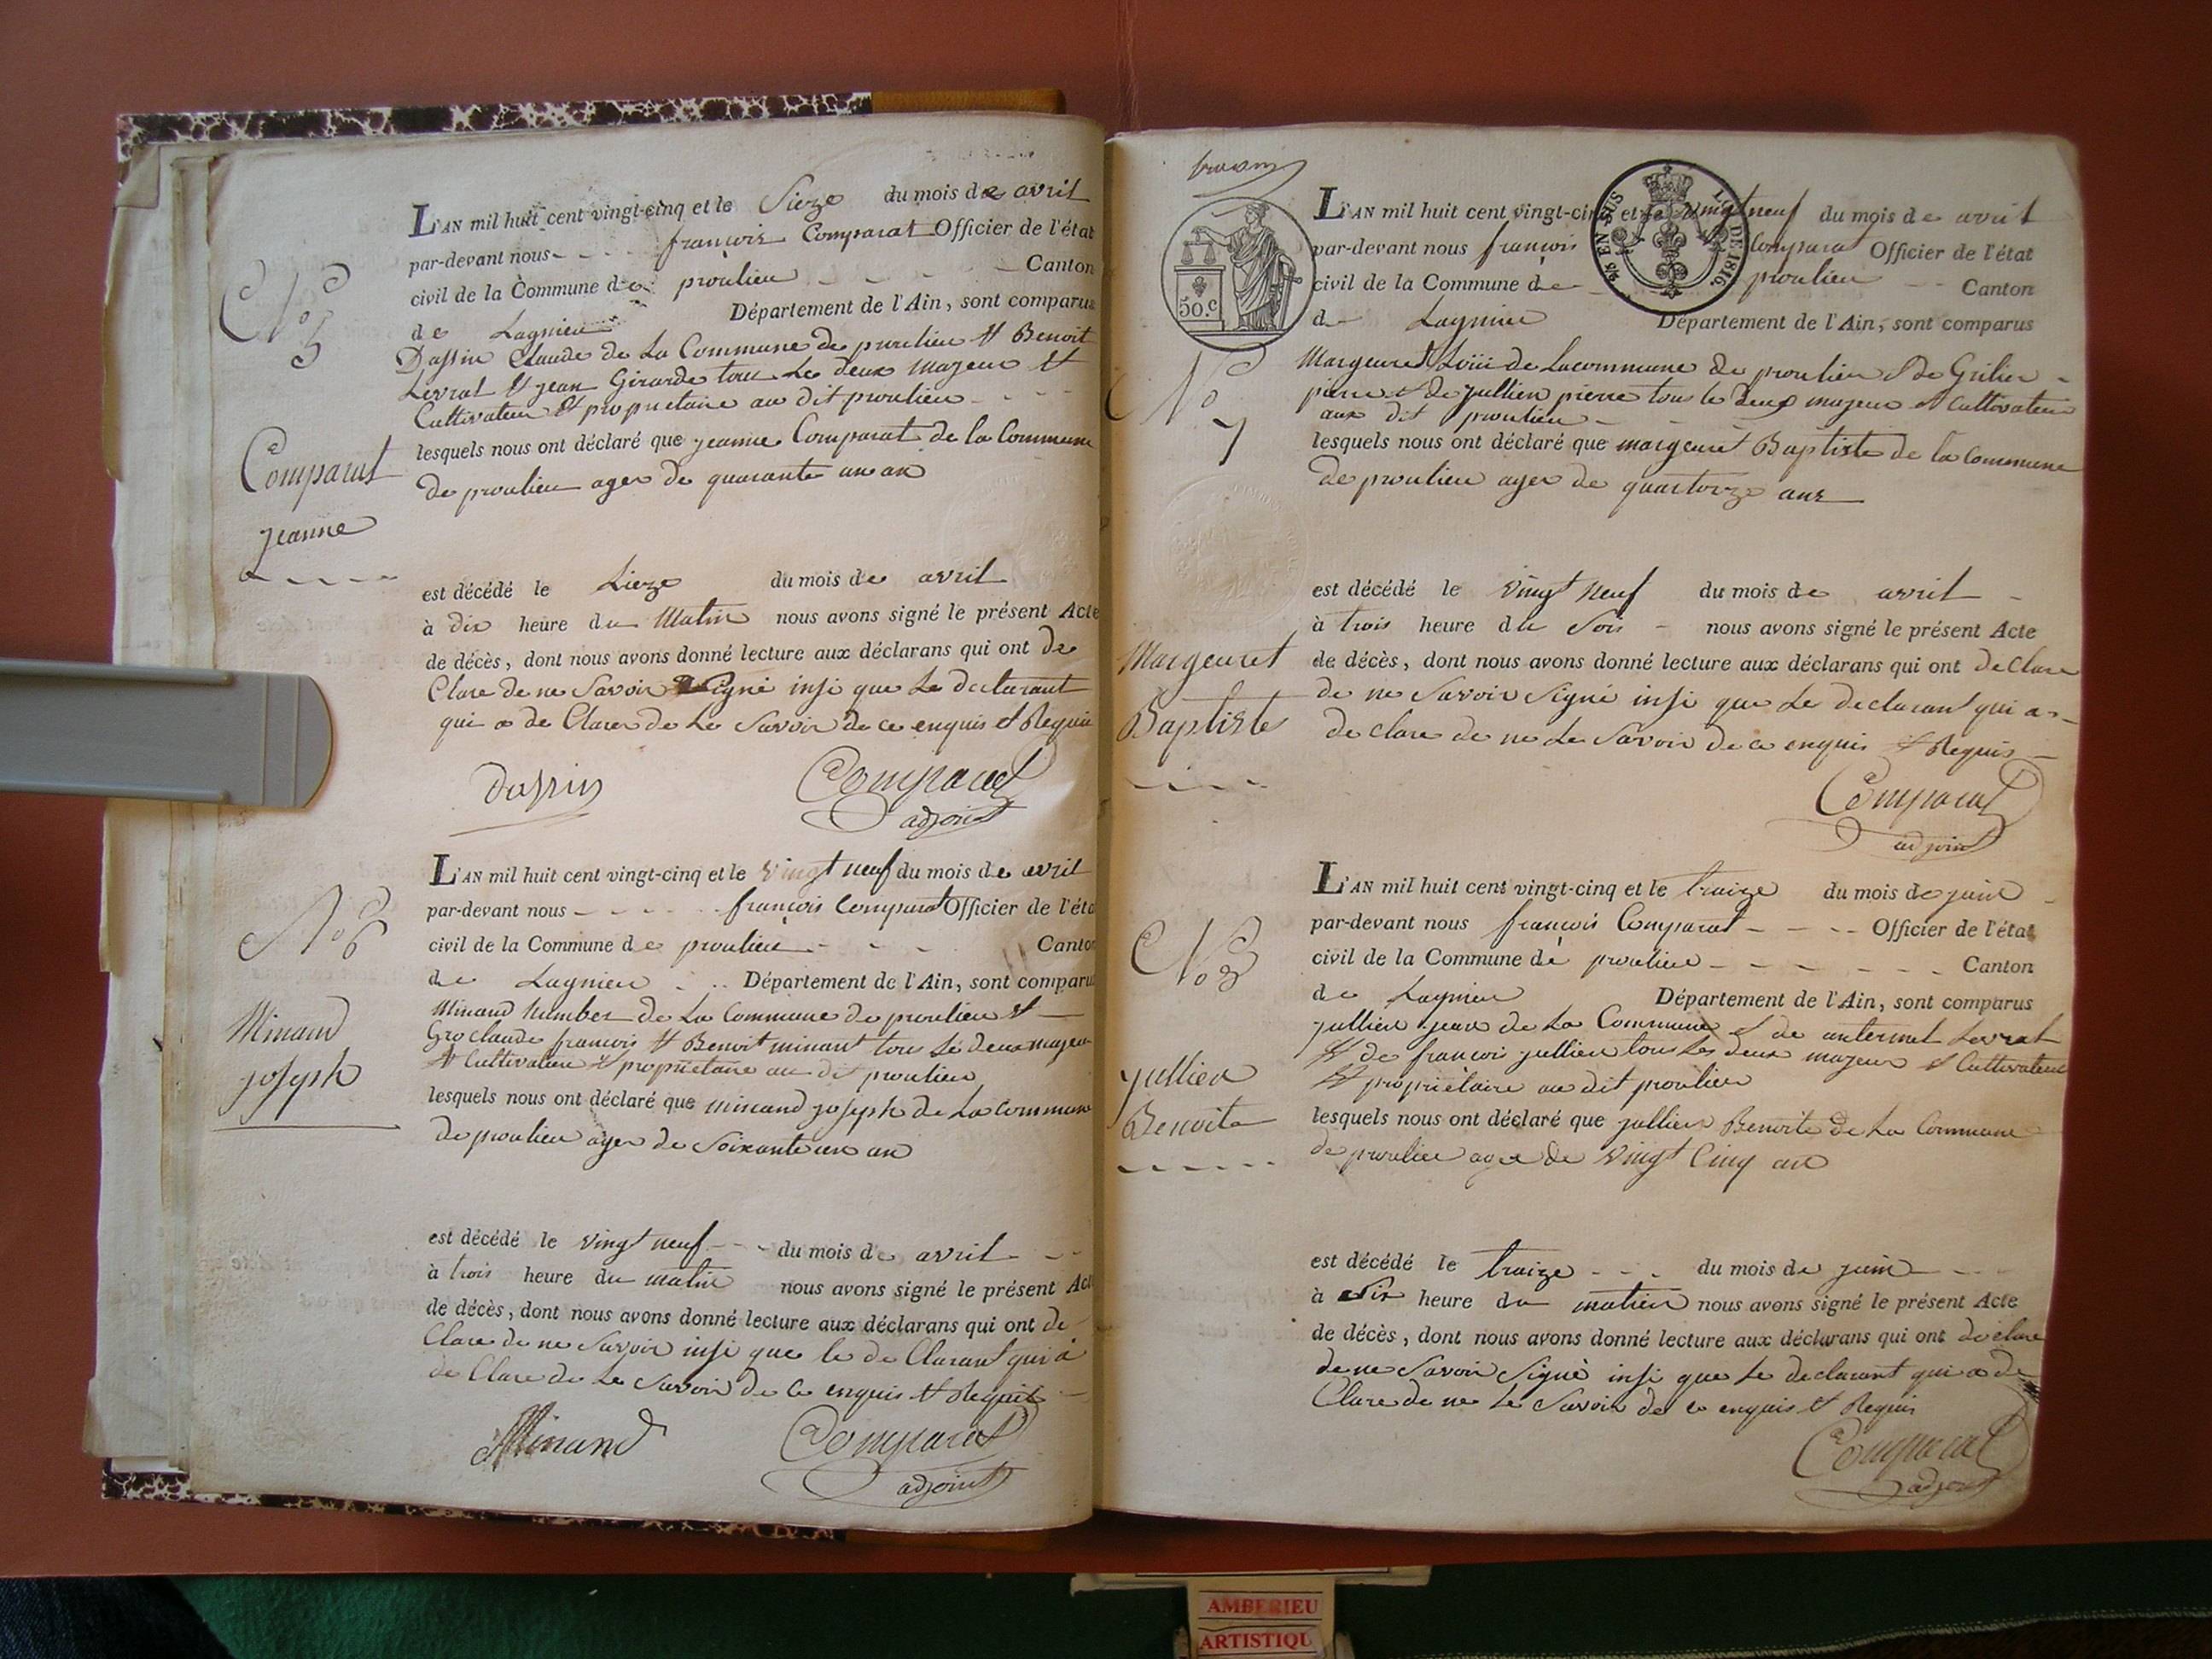 L'AN mil huit cent vingt-cinq et le Sieze du mois de avril
par-devant nous francois Comparat Officier de l'état
civil de la Commune de proulieu Canton
de Lagnieu Département de l'Ain, sont comparus
Dassin Claude de La Commune de proulieu et Benoit
Levrat et jean Girarde tous Les deux majeur et
Cultivateur et proprietaire au dit proulieu
lesquels nous ont déclaré que jeanne Comparat de la Commune
de proulieu ager de quarante un an
N° 5
Comparat
jeanne
est décédé le Sieze du mois de avril
à dix heure du Matin nous avons signé le présent Acte
de décès, dont nous avons donné lecture aux déclarans qui ont de
Clare de ne Savoir Signé insi que Le declarant
qui a de Clarer de Le Savoir de ce enquis et Requis
dassin Comparat
adjoint
L'AN mil huit cent vingt-cinq et le vingt neuf du mois de avril
par-devant nous francois Comparat Officier de l'éta
civil de la Commune de proulieu Canton
de Lagnieu Département de l'Ain, sont comparu
Minand de La Commune de proulieu et
Groclaude francois et Benoit minant tous Lé deux majeur
et Cultivateur et proprietaire au dit proulieu
lesquels nous ont déclaré que minand joseph de La Commune
de proulieu ager de Soixante un an
N° 6
Minand
joseph
est décédé le vingt neuf du mois de avril
à trois heure du matin nous avons signé le présent Act
de décès, dont nous avons donné lecture aux déclarans qui ont de
Clare de ne Savoir insi que le de Clarant qui a
de Clare de Le Savoir de Ce enquis et Requis
Minand Comparat
adjoint
50.c
EN SUS
L. DE 1816
L'AN mil huit cent vingt-cinq et le vingt neuf du mois de avril
par-devant nous francois Comparat Officier de l'état
civil de la Commune de proulieu Canton
de Lagnieu Département de l'Ain, sont comparus
Margeuret Loüi de Lacommune de proulieu et de Grilier
pierre et de jullien pierre tous le deux majeur et Cultivateur
aux dit proulieu
lesquels nous ont déclaré que margeuret Baptiste de la Commune
de proulieu ager de quartorze ans
N° 7
Margeuret
Baptiste
est décédé le vingt Neuf du mois de avril
à trois heure du Soir nous avons signé le présent Acte
de décès, dont nous avons donné lecture aux déclarans qui ont de Clare
de ne Savoir Signé insi que Le declarant qui a
de Clare de ne Le Savoir de ce enquis et Requis
Comparat
adjoint
L'AN mil huit cent vingt-cinq et le traize du mois de juin
par-devant nous francois Comparat Officier de l'état
civil de la Commune de proulieu Canton
de Lagnieu Département de l'Ain, sont comparus
jullien jean de La Commune et de Levrat
et de francois jullien tous Les deux majeur et Cultivateur
et propriètaire au dit proulieu
lesquels nous ont déclaré que jullien Benoite de La Commune
de proulieu age de vingt Cinq an
N° 8
jullien
Benoite
est décédé le traize du mois de juin
à Six heure du matien nous avons signé le présent Acte
de décès, dont nous avons donné lecture aux déclarans qui ont de clare
de ne Savoir Signè insi que Le declarant qui a de
Clare de ne Le Savoir de ce enquis et Requis
Comparat
adjoint
AMBERIEU
ARTISTIQU